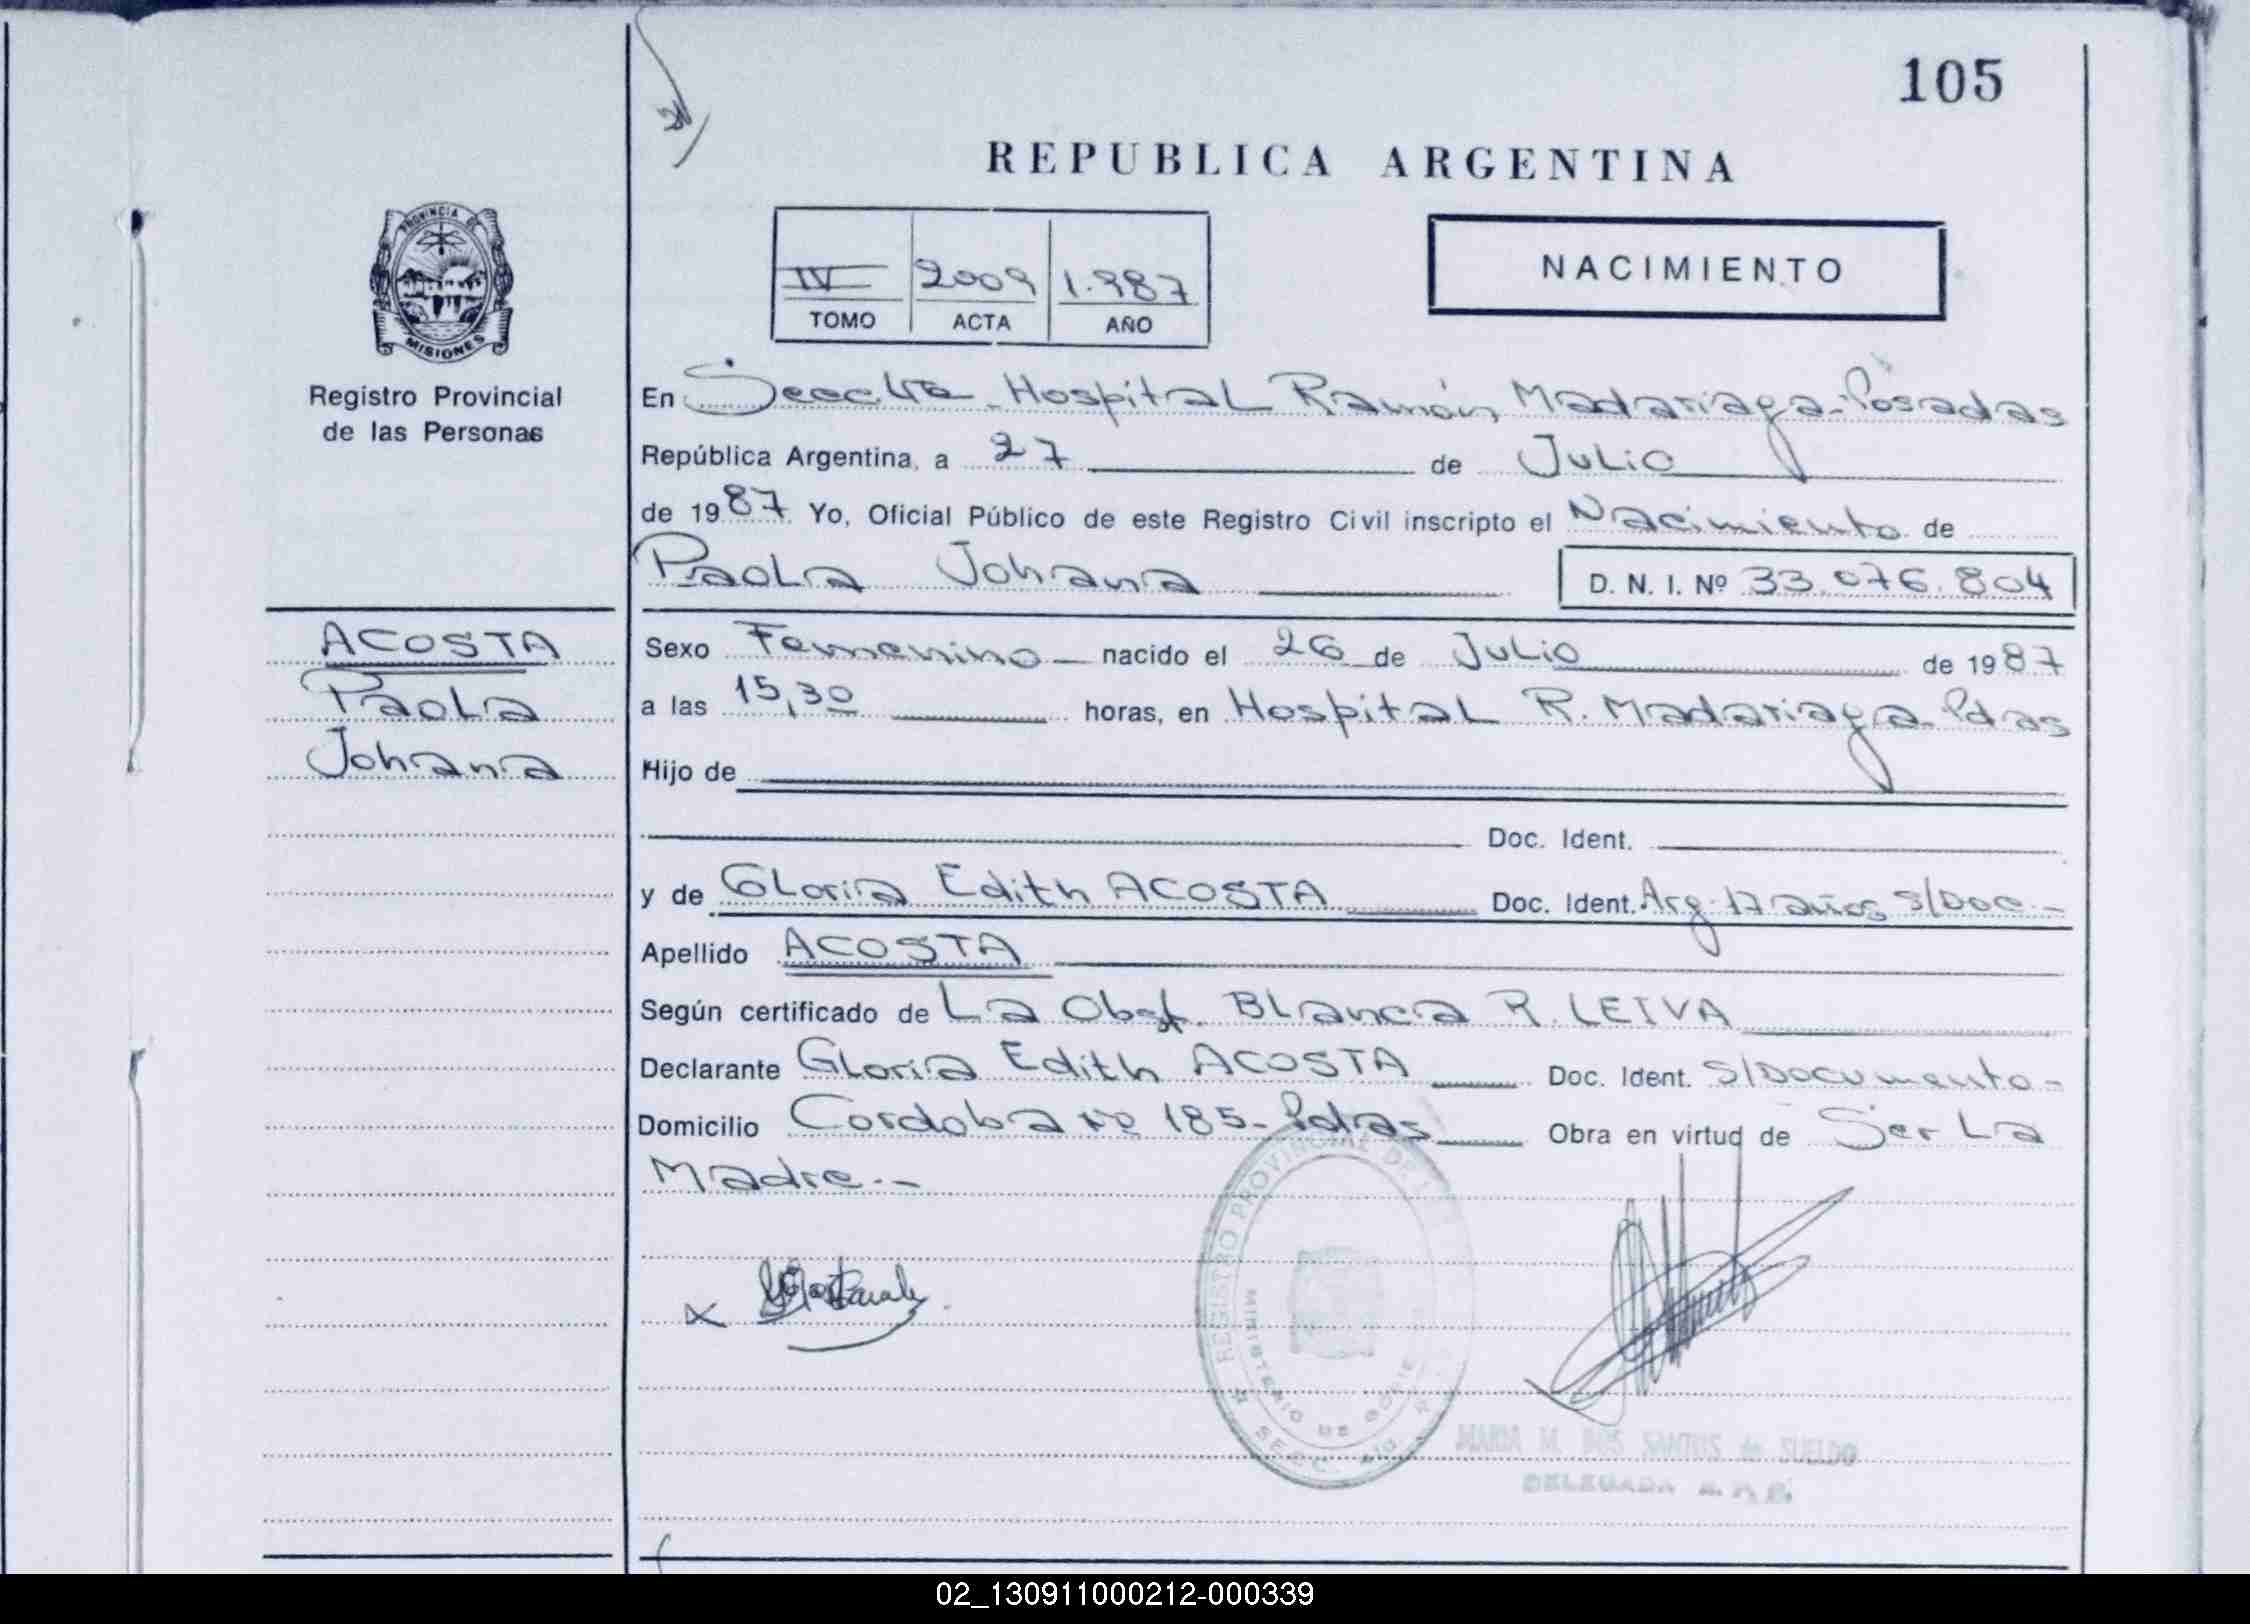 105
REPUBLICA ARGENTINA
PROVINCIA DE
MISIONES
Registro Provincial
de las Personas
IV 2009 1.987
TOMO ACTA AÑO
NACIMIENTO
En Hospital Ramón Madariaga-Posadas
República Argentina, a 27 de Julio
de 1987 Yo, Oficial Público de este Registro Civil inscripto el Nacimiento de
Paola Johana D. N. I. Nº 33.076.804
ACOSTA
Paola
Johana
Sexo Femenino nacido el 26 de Julio de 1987
a las 15,30 horas, en Hospital R. Madariaga-Pdas
Hijo de
Doc. Ident.
y de Gloria Edith ACOSTA Doc. Ident. Arg. 17 años S/Doc-
Apellido ACOSTA
Según certificado de La Obst. Blanca R. LEIVA
Declarante Gloria Edith ACOSTA Doc. Ident. S/Documento-
Domicilio Cordoba Nº 185-Pdas Obra en virtud de Ser La
Madre.-
REGISTRO PROVINCIAL DE
MINISTERIO DE GOBIE
SECC.
MARIA M. DOS SANTOS de SUELDO
DELEGADA
02_130911000212-000339